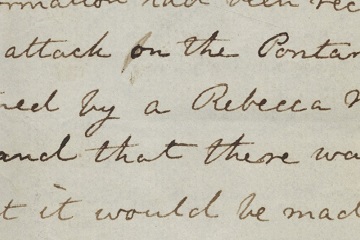 rmation had been rec
attack on the Pontar
ned by a Rebecca
and that there wa
t it would be mad